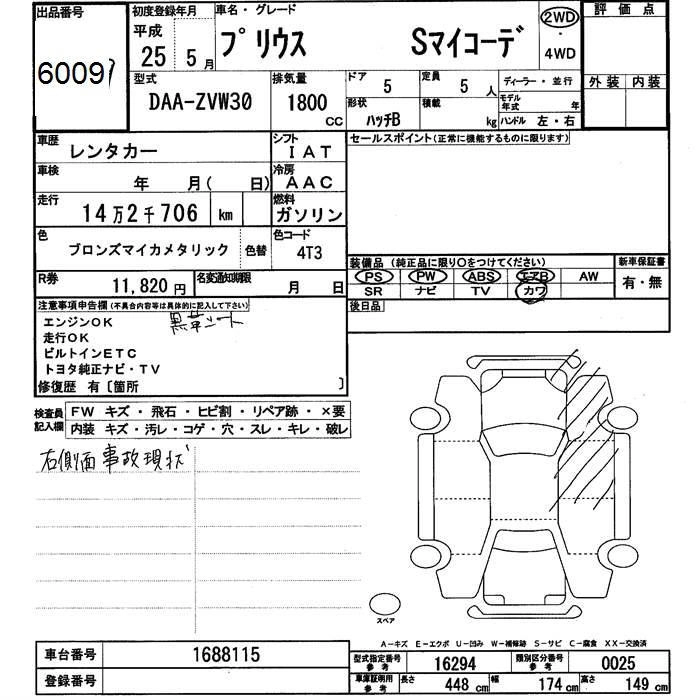 出品番号
60091
初度登録年月
平成
25 5月
車名・グレード
プリウス Sマイコーデ
2WD
・
4WD
評価点
外装 内装
型式
DAA-ZVW30
排気量
1800
CC
ドア
5
定員
5人
形状
ハッチB
積載
kg
ディーラー・並行
モデル年式 年
ハンドル 左・右
車歴
レンタカー
シフト
IAT
セールスポイント(正常に機能するものに限ります)
車検
年 月( 日)
冷房
AAC
走行
14万2千706 km
燃料
ガソリン
色
ブロンズマイカメタリック
色替
色コード
4T3
装備品(純正品に限り○をつけてください)
PS PW ABS エアB AW
SR ナビ TV カワ
新車保証書
有・無
R券
11,820円
名変通知期限
月 日
後日品
注意事項申告欄(不具合内容等は具体的に記入して下さい)
エンジンOK
走行OK
ビルトインETC
トヨタ純正ナビ・TV
黒革シート
修復歴 有〔箇所 〕
検査員記入欄
FW キズ・飛石・ヒビ割・リペア跡・×要
内装 キズ・汚レ・コゲ・穴・スレ・キレ・破レ
右側面 事故現状
スペア
A-キズ E-エクボ U-凹み W-補修跡 S-サビ C-腐食 XX-交換済
車台番号
1688115
登録番号
型式指定番号
参考
16294
類別区分番号
参考
0025
車庫証明用
参考
長さ 448 cm
幅 174 cm
高さ 149 cm